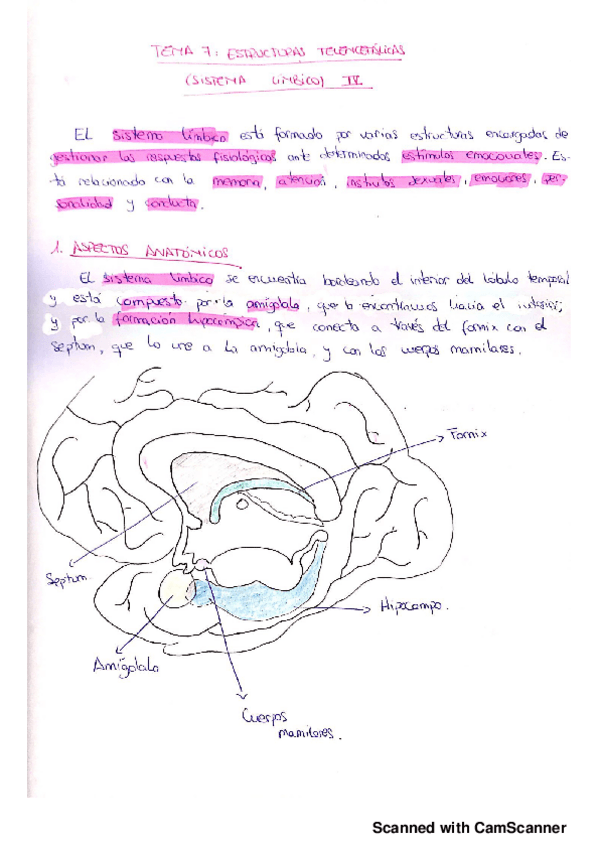 TEMA 7: ESTRUCTURAS TELENCEFÁLICAS
(SISTEMA LÍMBICO) IV.
El sistema límbico está formado por varias estructuras encargadas de
gestionar las respuestas fisiológicas ante determinados estímulos emocionales. Es-
tá relacionado con la memoria, atención, instintos sexuales, emociones, per-
sonalidad y conducta.
1. ASPECTOS ANATÓMICOS
El sistema límbico se encuentra bordeando el interior del lóbulo temporal
y está compuesto por la amígdala, que la encontramos hacia el interior;
y por la formación hipocámpica, que conecta a través del fornix con el
septum, que lo une a la amígdala, y con los cuerpos mamilares.
Fornix
Septum.
Hipocampo.
Amígdala
Cuerpos
mamilares.
Scanned with CamScanner